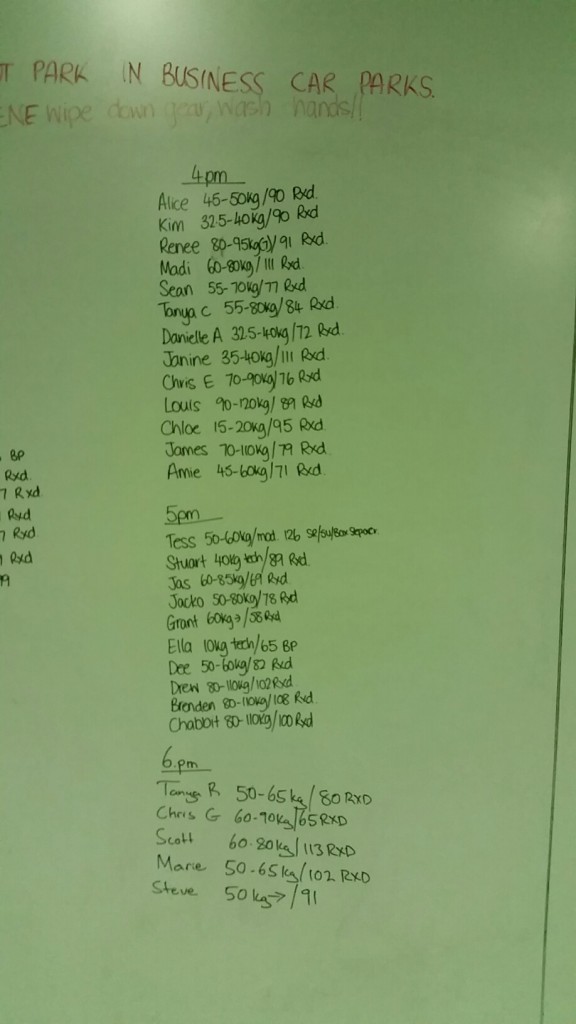 T PARK IN BUSINESS CAR PARKS.
ENE wipe down gear, wash hands!!
4pm
Alice 45-50kg/90 Rxd.
Kim 32.5-40kg/90 Rxd
Renee 80-95kg(J)/91 Rxd.
Madi 60-80kg/111 Rxd.
Sean 55-70kg/77 Rxd
Tanya C 55-80kg/84 Rxd.
Danielle A 32.5-40kg/72 Rxd.
Janine 35-40kg/111 Rxd.
Chris E 70-90kg/76 Rxd
Louis 90-120kg/89 Rxd
Chloe 15-20kg/95 Rxd.
James 70-110kg/79 Rxd.
Amie 45-60kg/71 Rxd.
BP
Rxd.
7 Rxd
Rxd
7 Rxd
Rxd
99
5pm
Tess 50-60kg/mod. 126 SP/su/Box
Stuart 40kg tech/89 Rxd.
Jas 60-85kg/69 Rxd.
Jacko 50-80kg/78 Rxd
Grant 60kg→/58 Rxd
Ella 10kg tech/65 BP
Dee 50-60kg/82 Rxd
Drew 80-110kg/102 Rxd.
Brenden 80-110kg/108 Rxd.
Chabbit 80-110kg/100 Rxd
6.pm
Tanya R 50-65kg/80 RXD
Chris G 60-90kg/65 RXD
Scott 60-80kg/113 RXD
Marie 50-65kg/102 RXD
Steve 50kg→/91